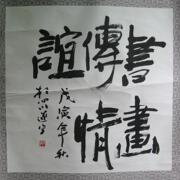 書畫
傳情
誼
戊寅年秋